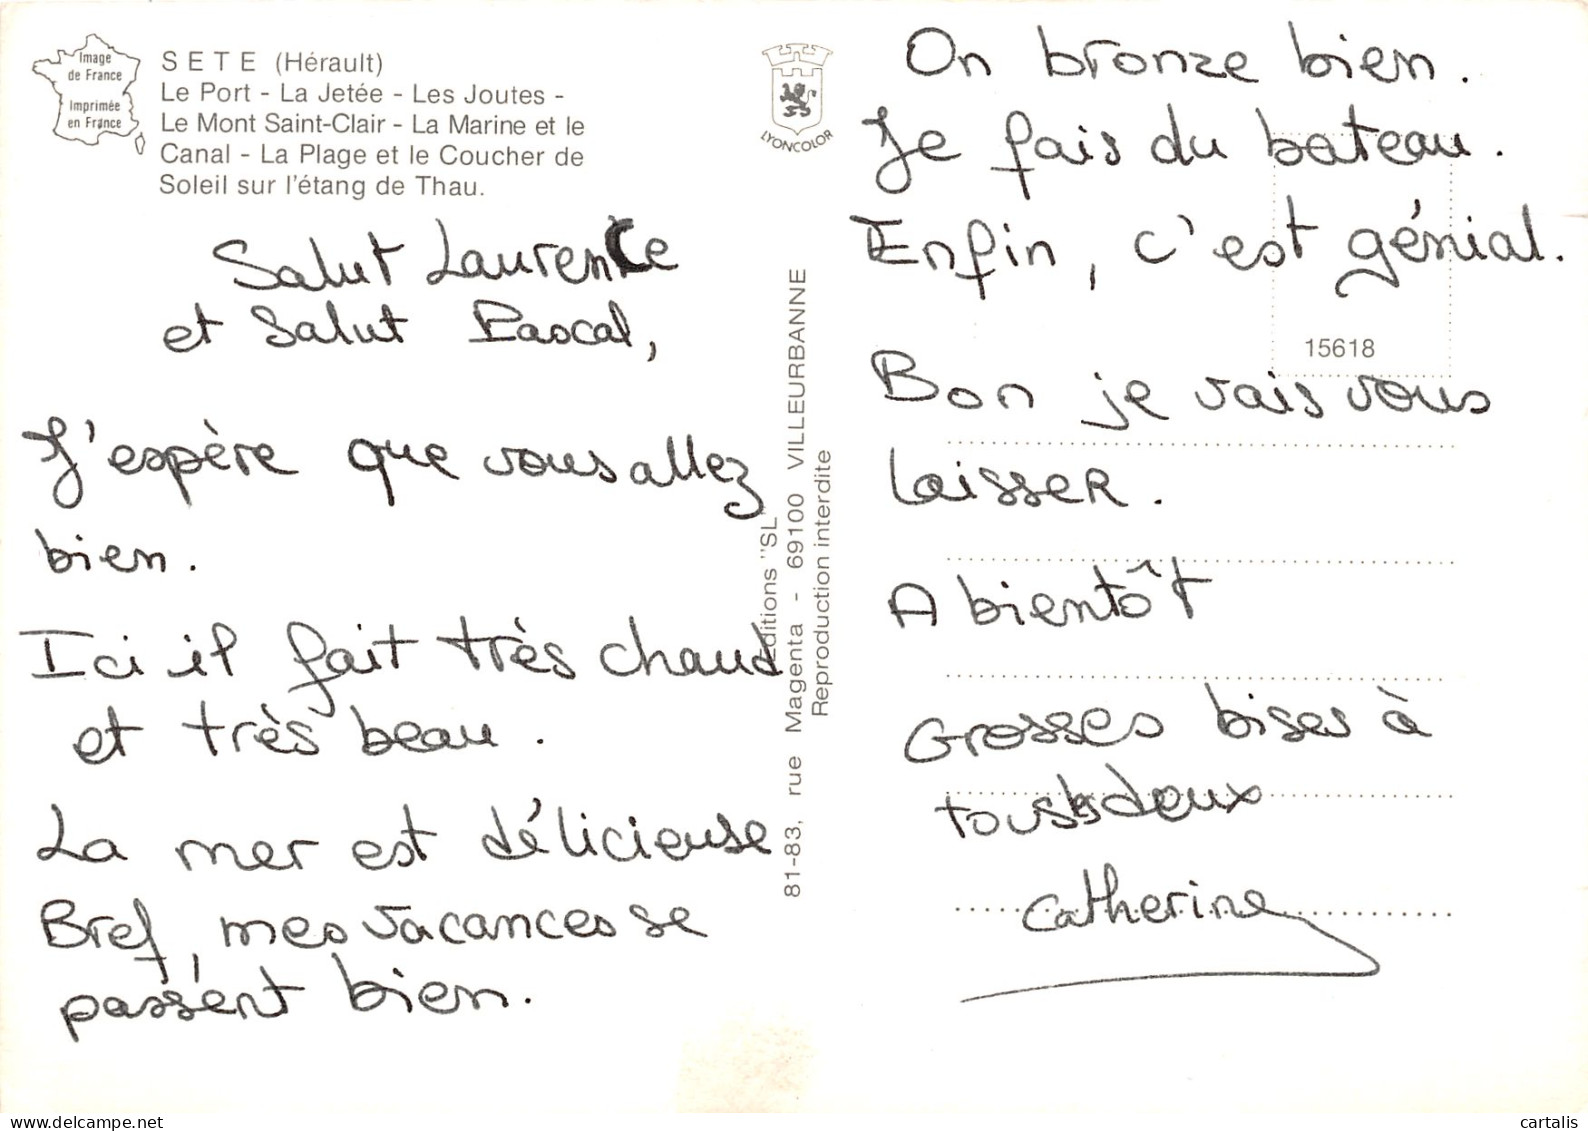 Image
de France
Imprimée
en France
SETE (Hérault)
Le Port - La Jetée - Les Joutes -
Le Mont Saint-Clair - La Marine et le
Canal - La Plage et le Coucher de
Soleil sur l'étang de Thau.
Salut Laurence
et Salut Pascal,
J'espère que vous allez
bien.
Ici il fait très chaud
et très beau.
La mer est délicieuse
Bref, mes vacances se
passent bien.
Editions "SL"
81-83, rue Magenta - 69100 VILLEURBANNE
Reproduction interdite
LYONCOLOR
On bronze bien.
Je fais du bateau.
Enfin, c'est génial.
15618
Bon je vais vous
laisser.
A bientôt
Grosses bises à
tous deux
Catherine
Ref. Nr.: CAR-AARP10-SETE
cartalis